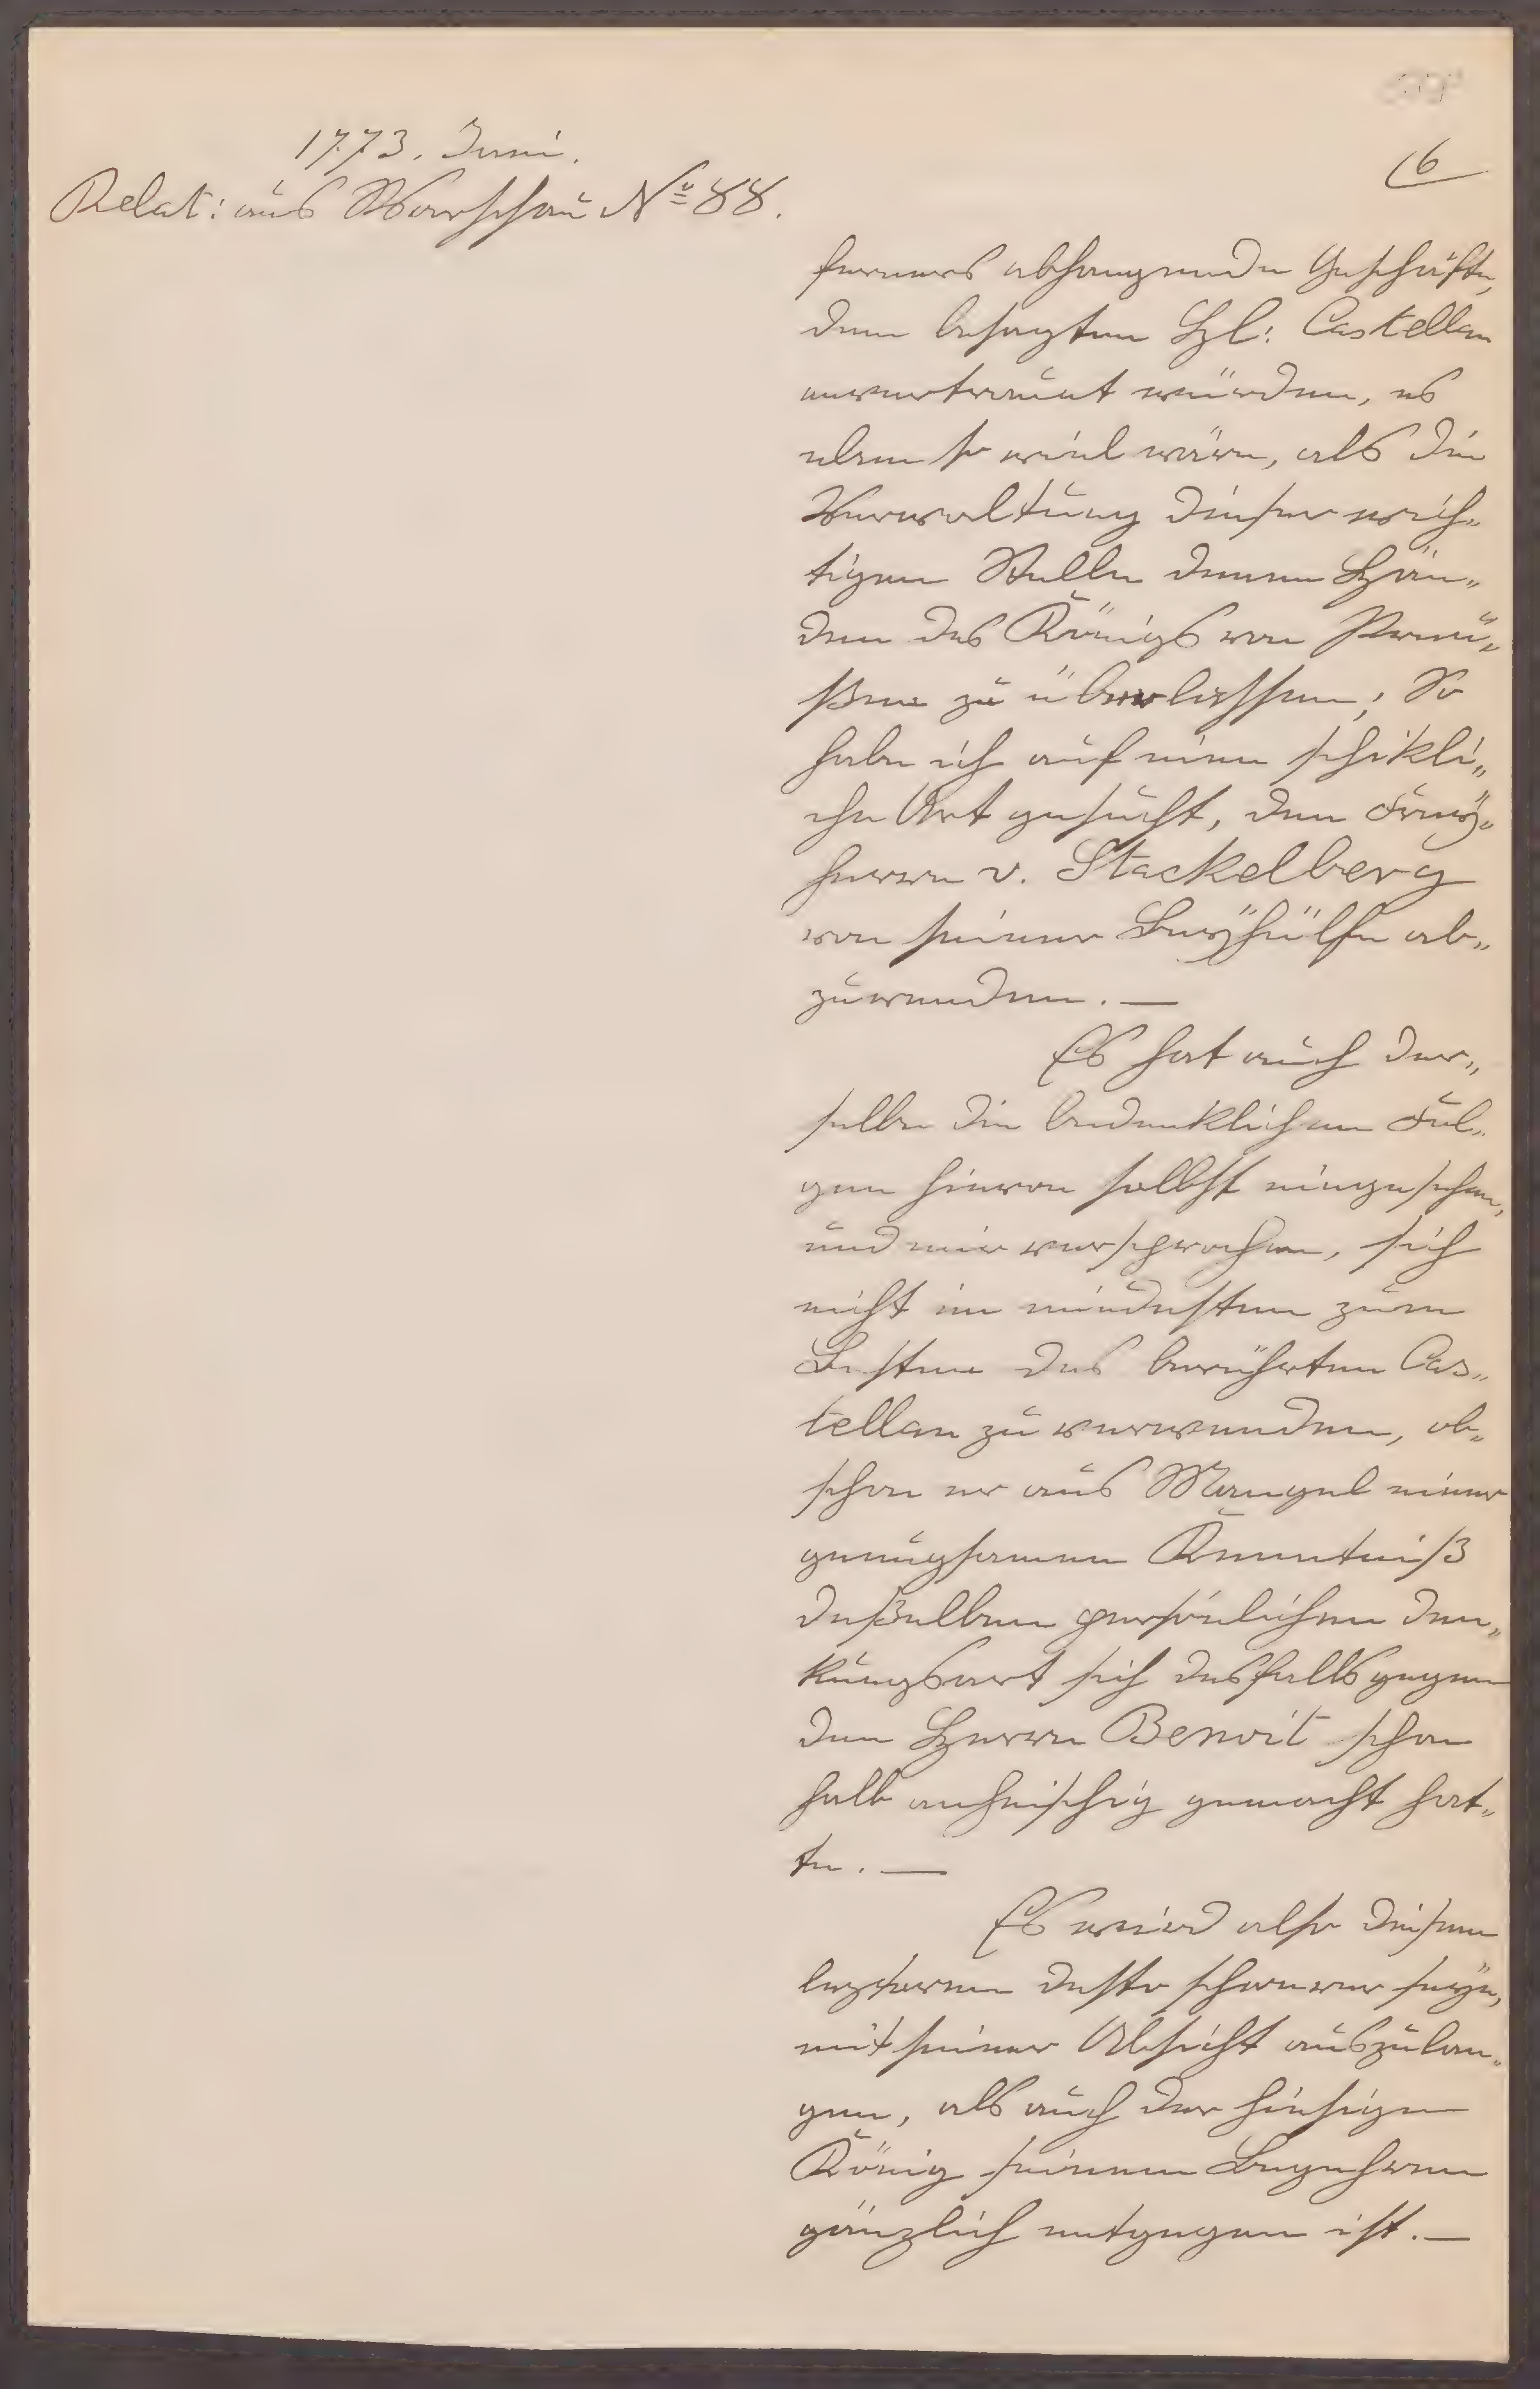 1773. Juni.
Relat: aus Warschau Nº 88.
6
ferners abhangende Geschäfte,
dem besagten H: Castellan
anvertraut würden, es
eben so viel wäre, als die
Verwaltung dieser wich„
tigen Stelle denen Hän„
den des Königs von Preü„
ßen zu überlassen; So
habe ich auf eine schikli„
che Art gesucht, den Freÿ„
herrn v. Stackelberg
von seiner Beÿhülfe ab„
zuwenden. —
Es hat auch der„
selbe die bedenklichen Fol„
gen hievon selbst eingesehen,
und mir versprochen, sich
nicht im mindesten zum
Besten des berührten Cas„
tellan zu verwenden, ob„
schon er aus Mangel einer
genugsamen Kenntniß
deßelben persönlichen Den„
kungsart sich desfalls gegen
den Herrn Benoit schon
halb anheischig gemacht hat„
te. —
Es wird also diesem
lezteren desto schwerer seÿn,
mit seiner Absicht auszulan„
gen, als auch der hiesige
König seinem Begehren
gänzlich entgegen ist. —